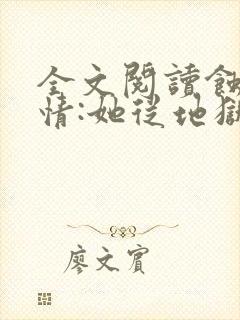 全文閱讀飯
情:她從地獄
廖文賓